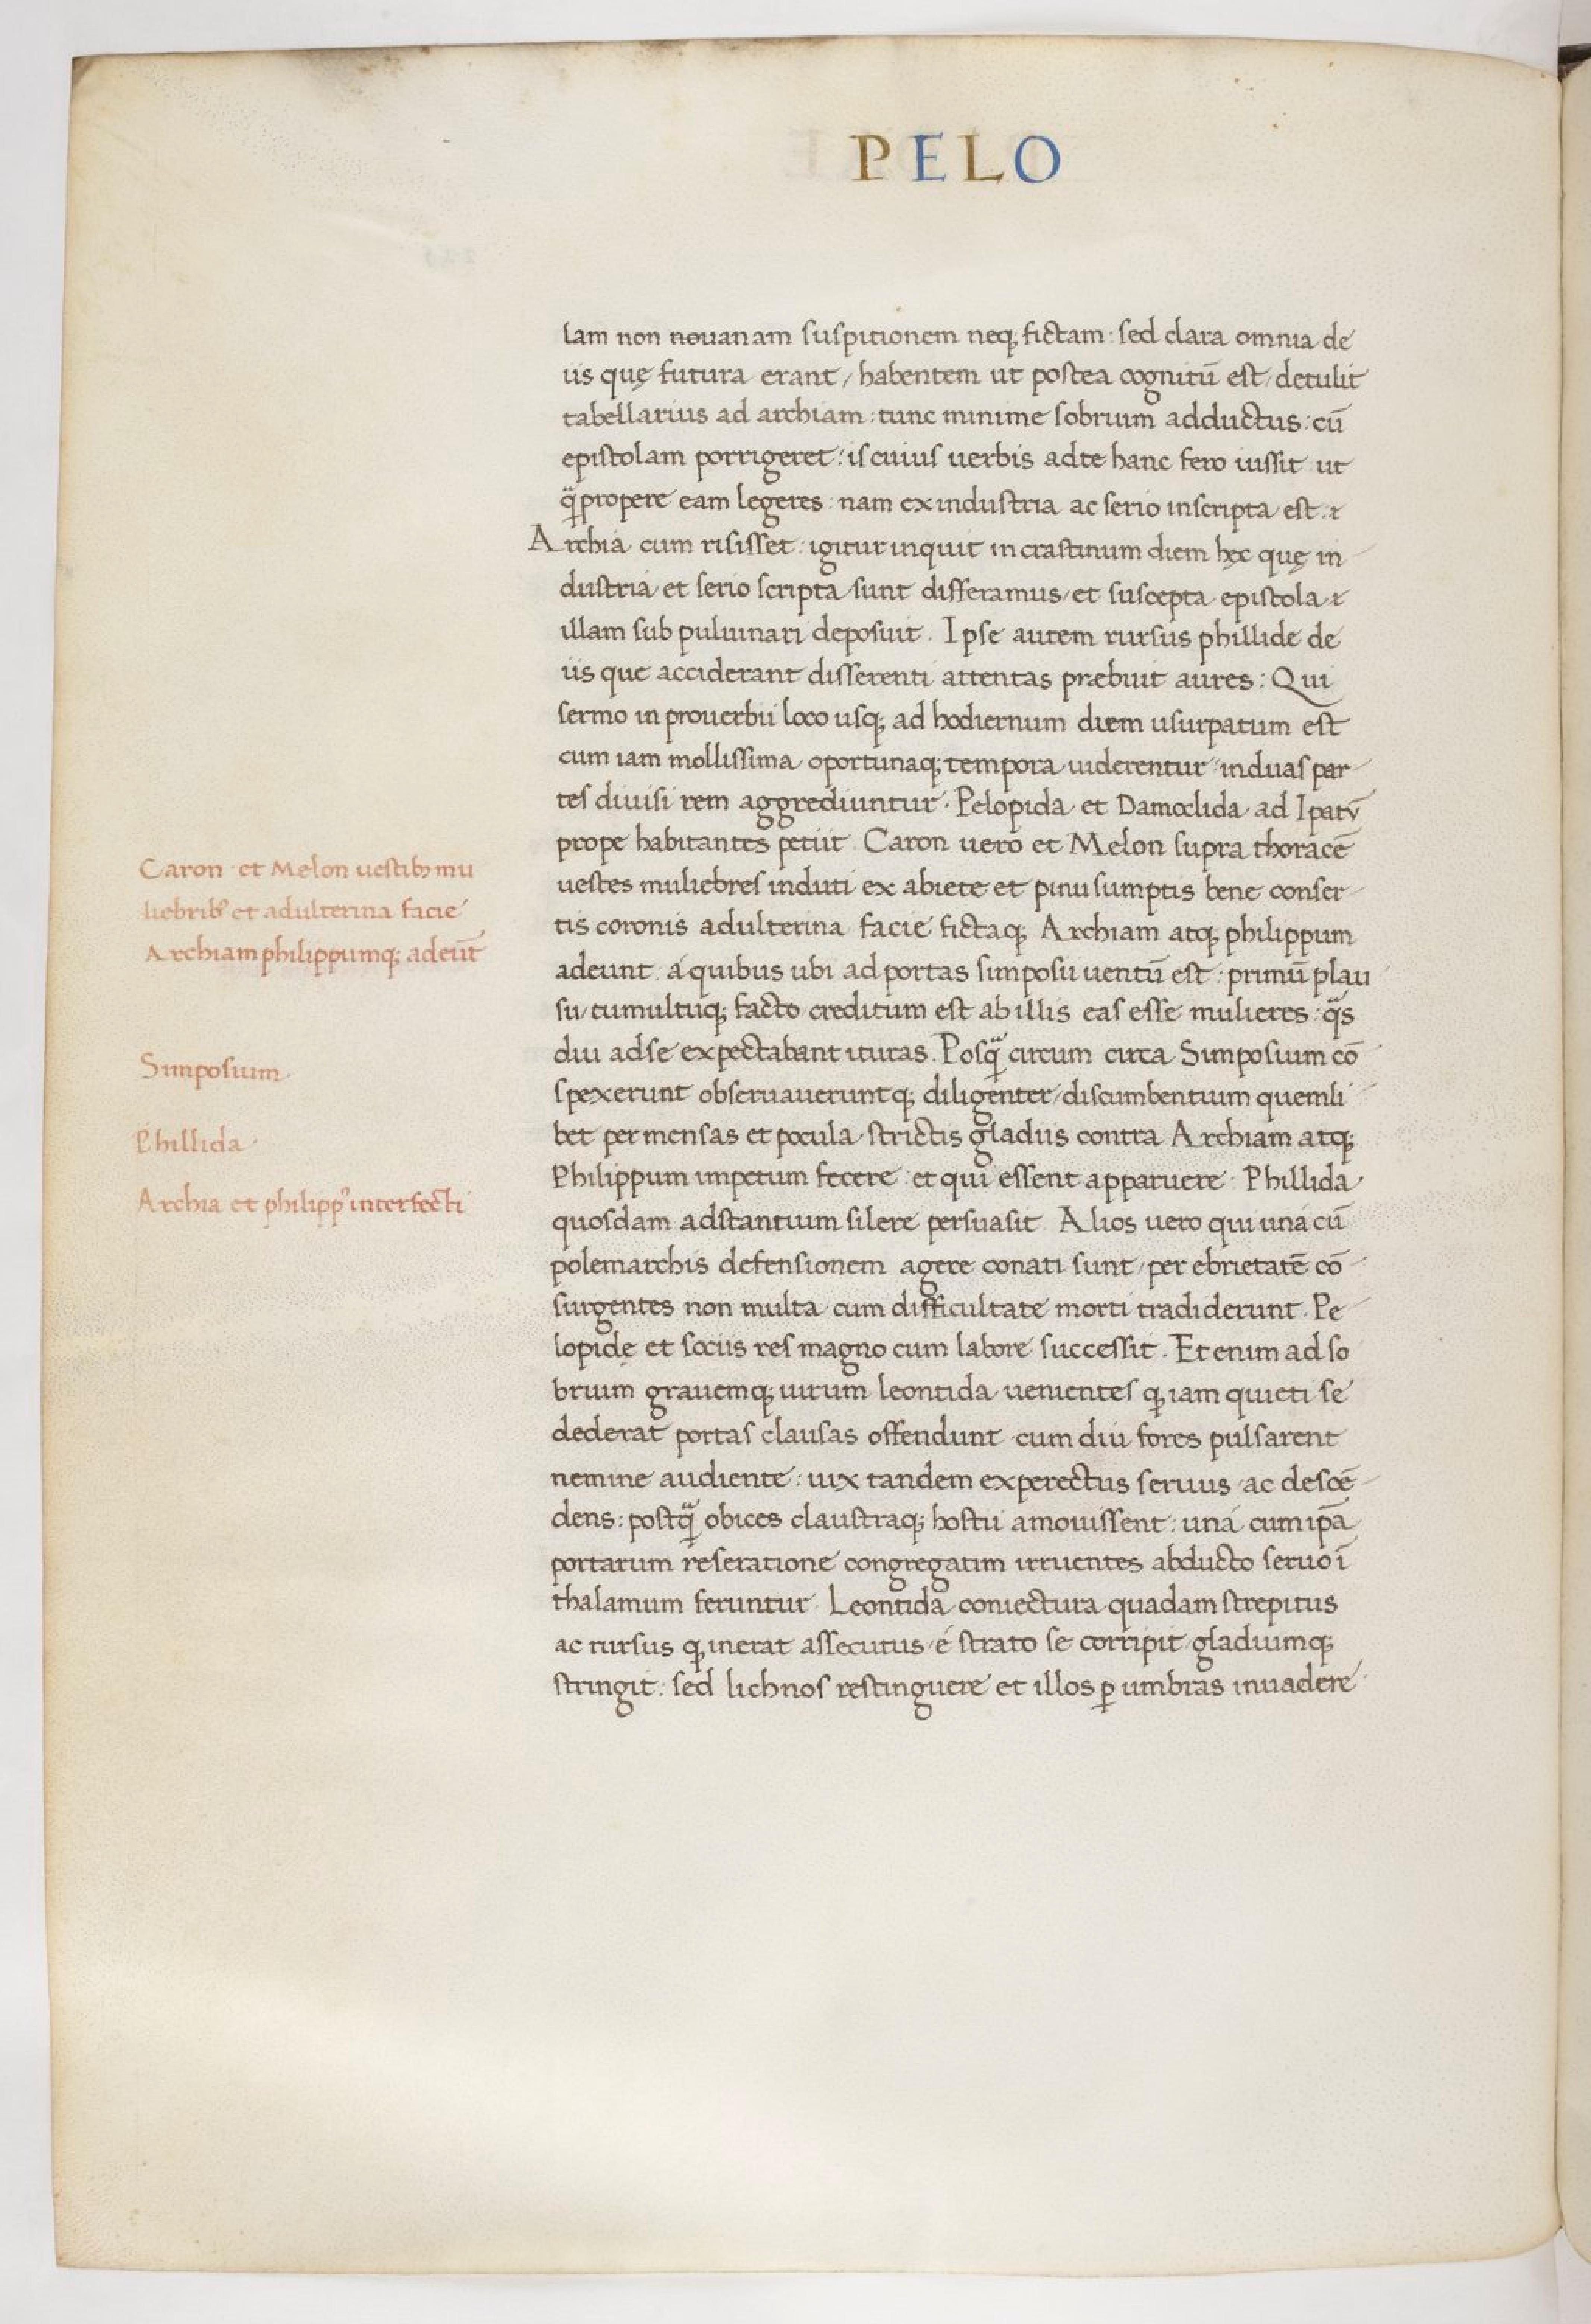 PELO
lam non nouanam suspitionem neq; fictam: sed clara omnia de
iis quę futura erant, habentem ut postea cognitū est, detulit
tabellarius ad archiam: tunc minime sobrium adductus: cū
epistolam porrigeret: is cuius uerbis ad te hanc fero iussit ut
q̃propere eam legeres: nam ex industria ac serio inscripta est. &
Archia cum risisset: igitur inquit in crastinum diem hęc quę in
dustria et serio scripta sunt differamus, et suscepta epistola &
illam sub puluinari deposuit. Ipse autem rursus phillide de
iis que acciderant disserenti attentas præbuit aures: Qui
sermo in prouerbii loco usq; ad hodiernum diem usurpatum est
cum iam mollissima oportunaq; tempora uiderentur: in duas par
tes diuisi rem aggrediuntur. Pelopida et Damoclida ad Ipatū
prope habitantes petiit. Caron uero et Melon supra thoracē
uestes muliebres induti ex abiete et pinu sumptis bene conser
tis coronis adulterina facie fictaq; Archiam atq; philippum
adeunt: á quibus ubi ad portas simposii uentū est: primū plau
su, tumultuq; facto creditum est ab illis eas esse mulieres: q̃s
diu ad se expectabant ituras. Posq̃ circum circa Simposium cō
spexerunt obseruaueruntq; diligenter, discumbentium quemli
bet per mensas et pocula strictis gladiis contra Archiam atq;
Philippum impetum fecere: et qui essent apparuere. Phillida
quosdam adstantium silere persuasit. Alios uero qui una cū
polemarchis defensionem agere conati sunt, per ebrietatē cō
surgentes non multa cum difficultate morti tradiderunt. Pe
lopidę et sociis res magno cum labore successit. Et enim ad so
brium grauemq; uirum leontida uenientes ꝙ iam quieti se
dederat portas clausas offendunt. cum diu fores pulsarent
nemine audiente: uix tandem experectus seruus ac descē
dens: postq̃ obices claustraq; hostii amouissent: uná cum ip̄a
portarum reseratione congregatim irruentes abducto seruo ī
thalamum feruntur. Leontida coniectura quadam strepitus
ac rursus ꝙ inerat assecutus, é strato se corripit, gladiumq;
stringit: sed lichnos restinguere et illos ꝑ umbras inuadere
Caron et Melon uestibꝫ mu
liebribꝰ et adulterina facie
Archiam philippumq; adeūt
Simposium
Phillida
Archia et philippꝰ interfecti